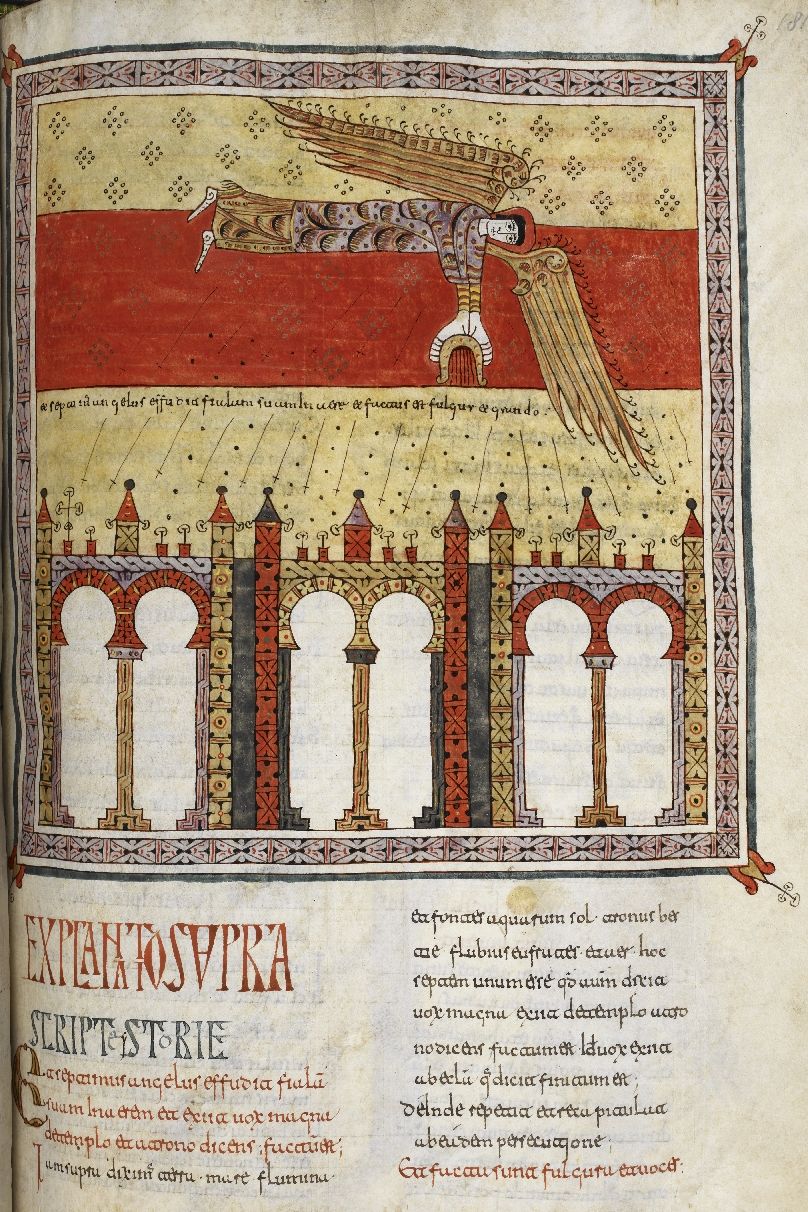 et septimus angelus effudit fiulam suum in aere et factus est fulgur et grando
EXPLANATIO SUPRA
SCRIPTE ISTORIE
Et septimus angelus effudit fialā
suam in aerem et exiit vox magna
de templo et a trono dicens; factum est;
Jam supra diximꝰ terra · mare flumina ·
et fontes aquarum sol · tronus bes
tie flubius eufrates · et aer · hoc
septem unum esse qd autm dixit
vox magna exiit de templo a tro
no dicens factum est Id vox exiit
ab ecla q dicit finitum est;
Deinde repetit et recapitulat
ab eadem persecutione;
Et facta sunt fulgura et voces: